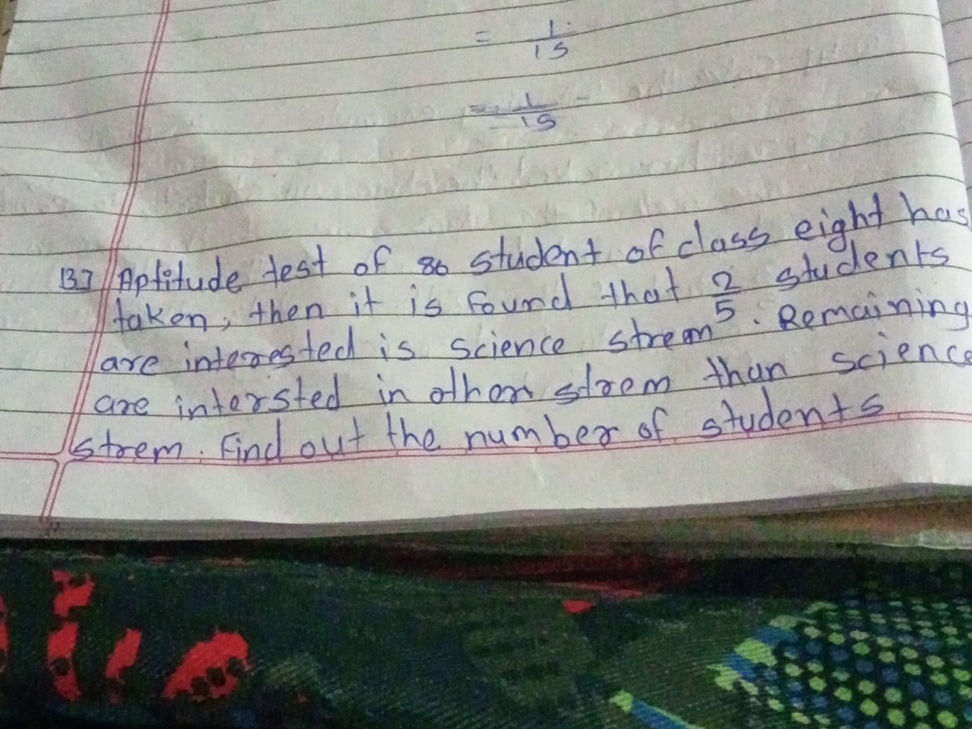 = 1/15
= 1/15
13] Aptitude test of 86 student of class eight has
taken, then it is found that 2/5 students
are interested is science strem. Remaining
are intersted in other strem than science
strem. Find out the number of students